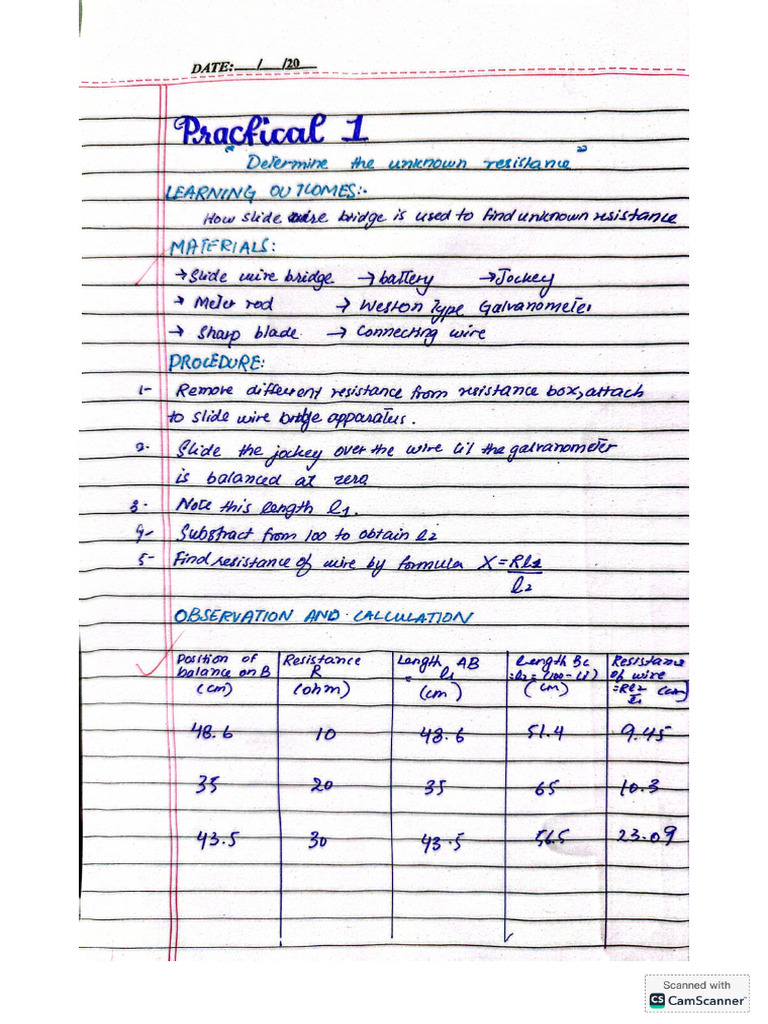 DATE:__/__/20__
Practical 1
"Determine the unknown resistance"
LEARNING OUTCOMES:-
How slide wire bridge is used to find unknown resistance
MATERIALS:
→ Slide wire bridge → battery → Jockey
→ Meter rod → Weston Type Galvanometer
→ Sharp blade → Connecting wire
PROCEDURE:
1- Remove different resistance from resistance box, attach
to slide wire bridge apparatus.
2- Slide the jockey over the wire til the galvanometer
is balanced at zero
3- Note this length l1.
4- Substract from 100 to obtain l2
5- Find resistance of wire by formula X = Rl1
l2
OBSERVATION AND CALCULATION
Position of Resistance Length AB Length BC Resistance
balance on B R = l1 = l2 = (100 - l1) of wire
(cm) (ohm) (cm) (cm) = Rl2/l1
48.6 10 48.6 51.4 9.45
35 20 35 65 10.3
43.5 30 43.5 56.5 23.09
Scanned with
CS CamScanner